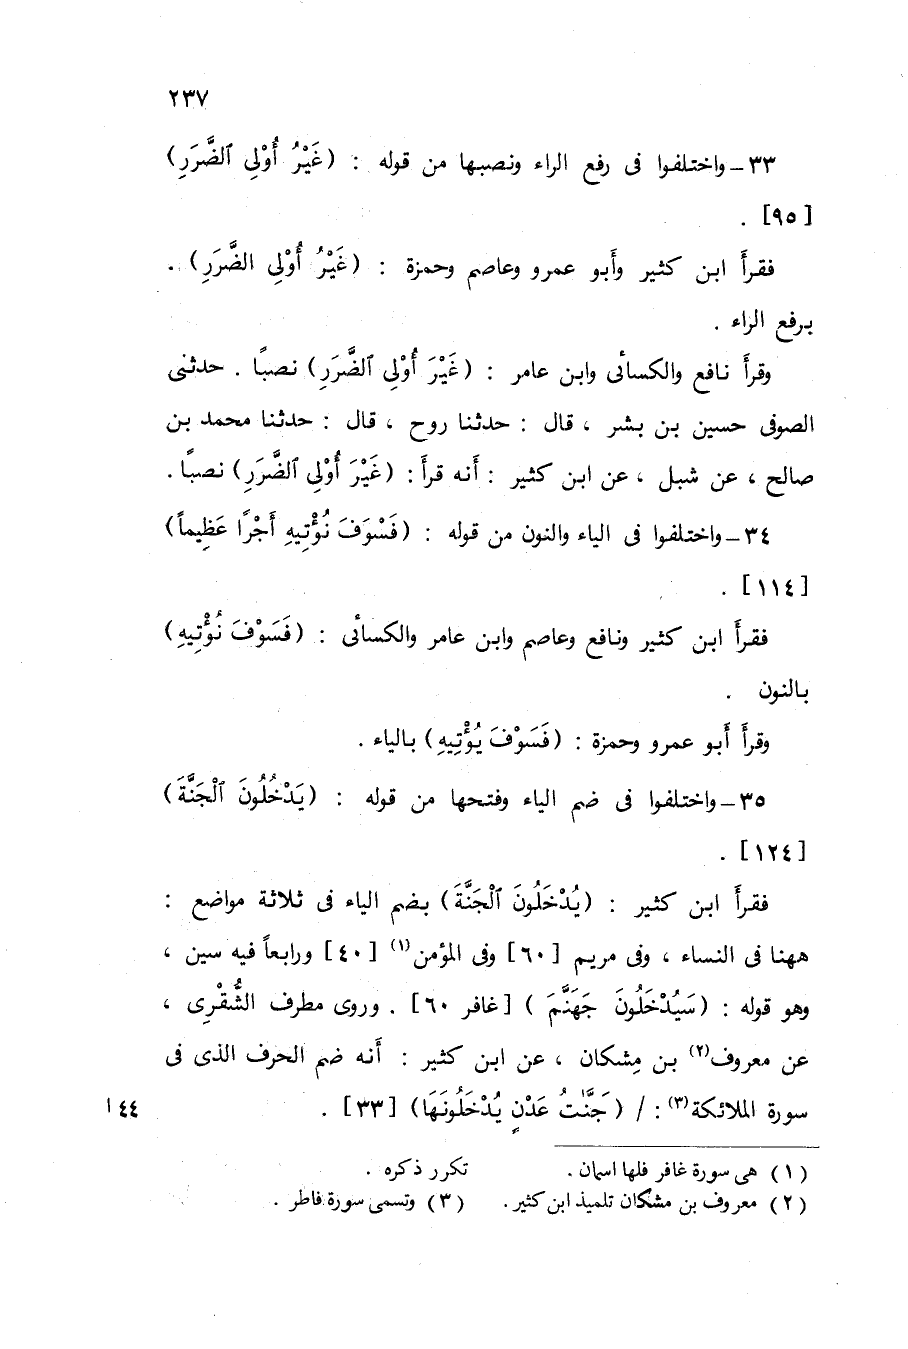 ٢٣٧
٣٣ ــ واختلفوا فى رفع الراء ونصبها من قوله : (غَيْرُ أُوْلِى ٱلضَّرَرِ)
[٩٥] .
فقرأ ابن كثير وأبو عمرو وعاصم وحمزة : (غَيْرُ أُوْلِى الضَّرَرِ) .
برفع الراء .
وقرأ نافع والكسائى وابن عامر : (غَيْرَ أُوْلِى ٱلضَّرَرِ) نصبًا . حدثنى
الصوفى حسين بن بشر ، قال : حدثنا روح ، قال : حدثنا محمد بن
صالح ، عن شبل ، عن ابن كثير : أنه قرأ : (غَيْرَ أُوْلِى ٱلضَّرَرِ) نصبًا .
٣٤ ــ واختلفوا فى الياء والنون من قوله : (فَسْوَفَ نُؤْتِيهِ أَجْرًا عَظِيماً)
[١١٤] .
فقرأ ابن كثير ونافع وعاصم وابن عامر والكسائى : (فَسَوْفَ نُؤْتِيهِ)
بالنون .
وقرأ أبو عمرو وحمزة : (فَسَوْفَ يُؤْتِيهِ) بالياء .
٣٥ ــ واختلفوا فى ضم الياء وفتحها من قوله : (يَدْخُلُونَ ٱلْجَنَّةَ)
[١٢٤] .
فقرأ ابن كثير : (يُدْخَلُونَ ٱلْجَنَّةَ) بضم الياء فى ثلاثة مواضع :
ههنا فى النساء ، وفى مريم [٦٠] وفى المؤمن(١) [٤٠] ورابعاً فيه سين ،
وهو قوله : (سَيُدْخَلُونَ جَهَنَّمَ ) [غافر ٦٠] . وروى مطرف الشُّقْرِى ،
عن معروف(٢) بن مِشكان ، عن ابن كثير : أنه ضم الحرف الذى فى
سورة الملائكة(٣) : / (جَنَّٰتُ عَدْنٍ يُدْخَلُونَهَا) [٣٣] . ٤٤ ا
(١) هى سورة غافر فلها اسمان . تكرر ذكره .
(٢) معروف بن مشكان تلميذ ابن كثير . (٣) وتسمى سورة فاطر .